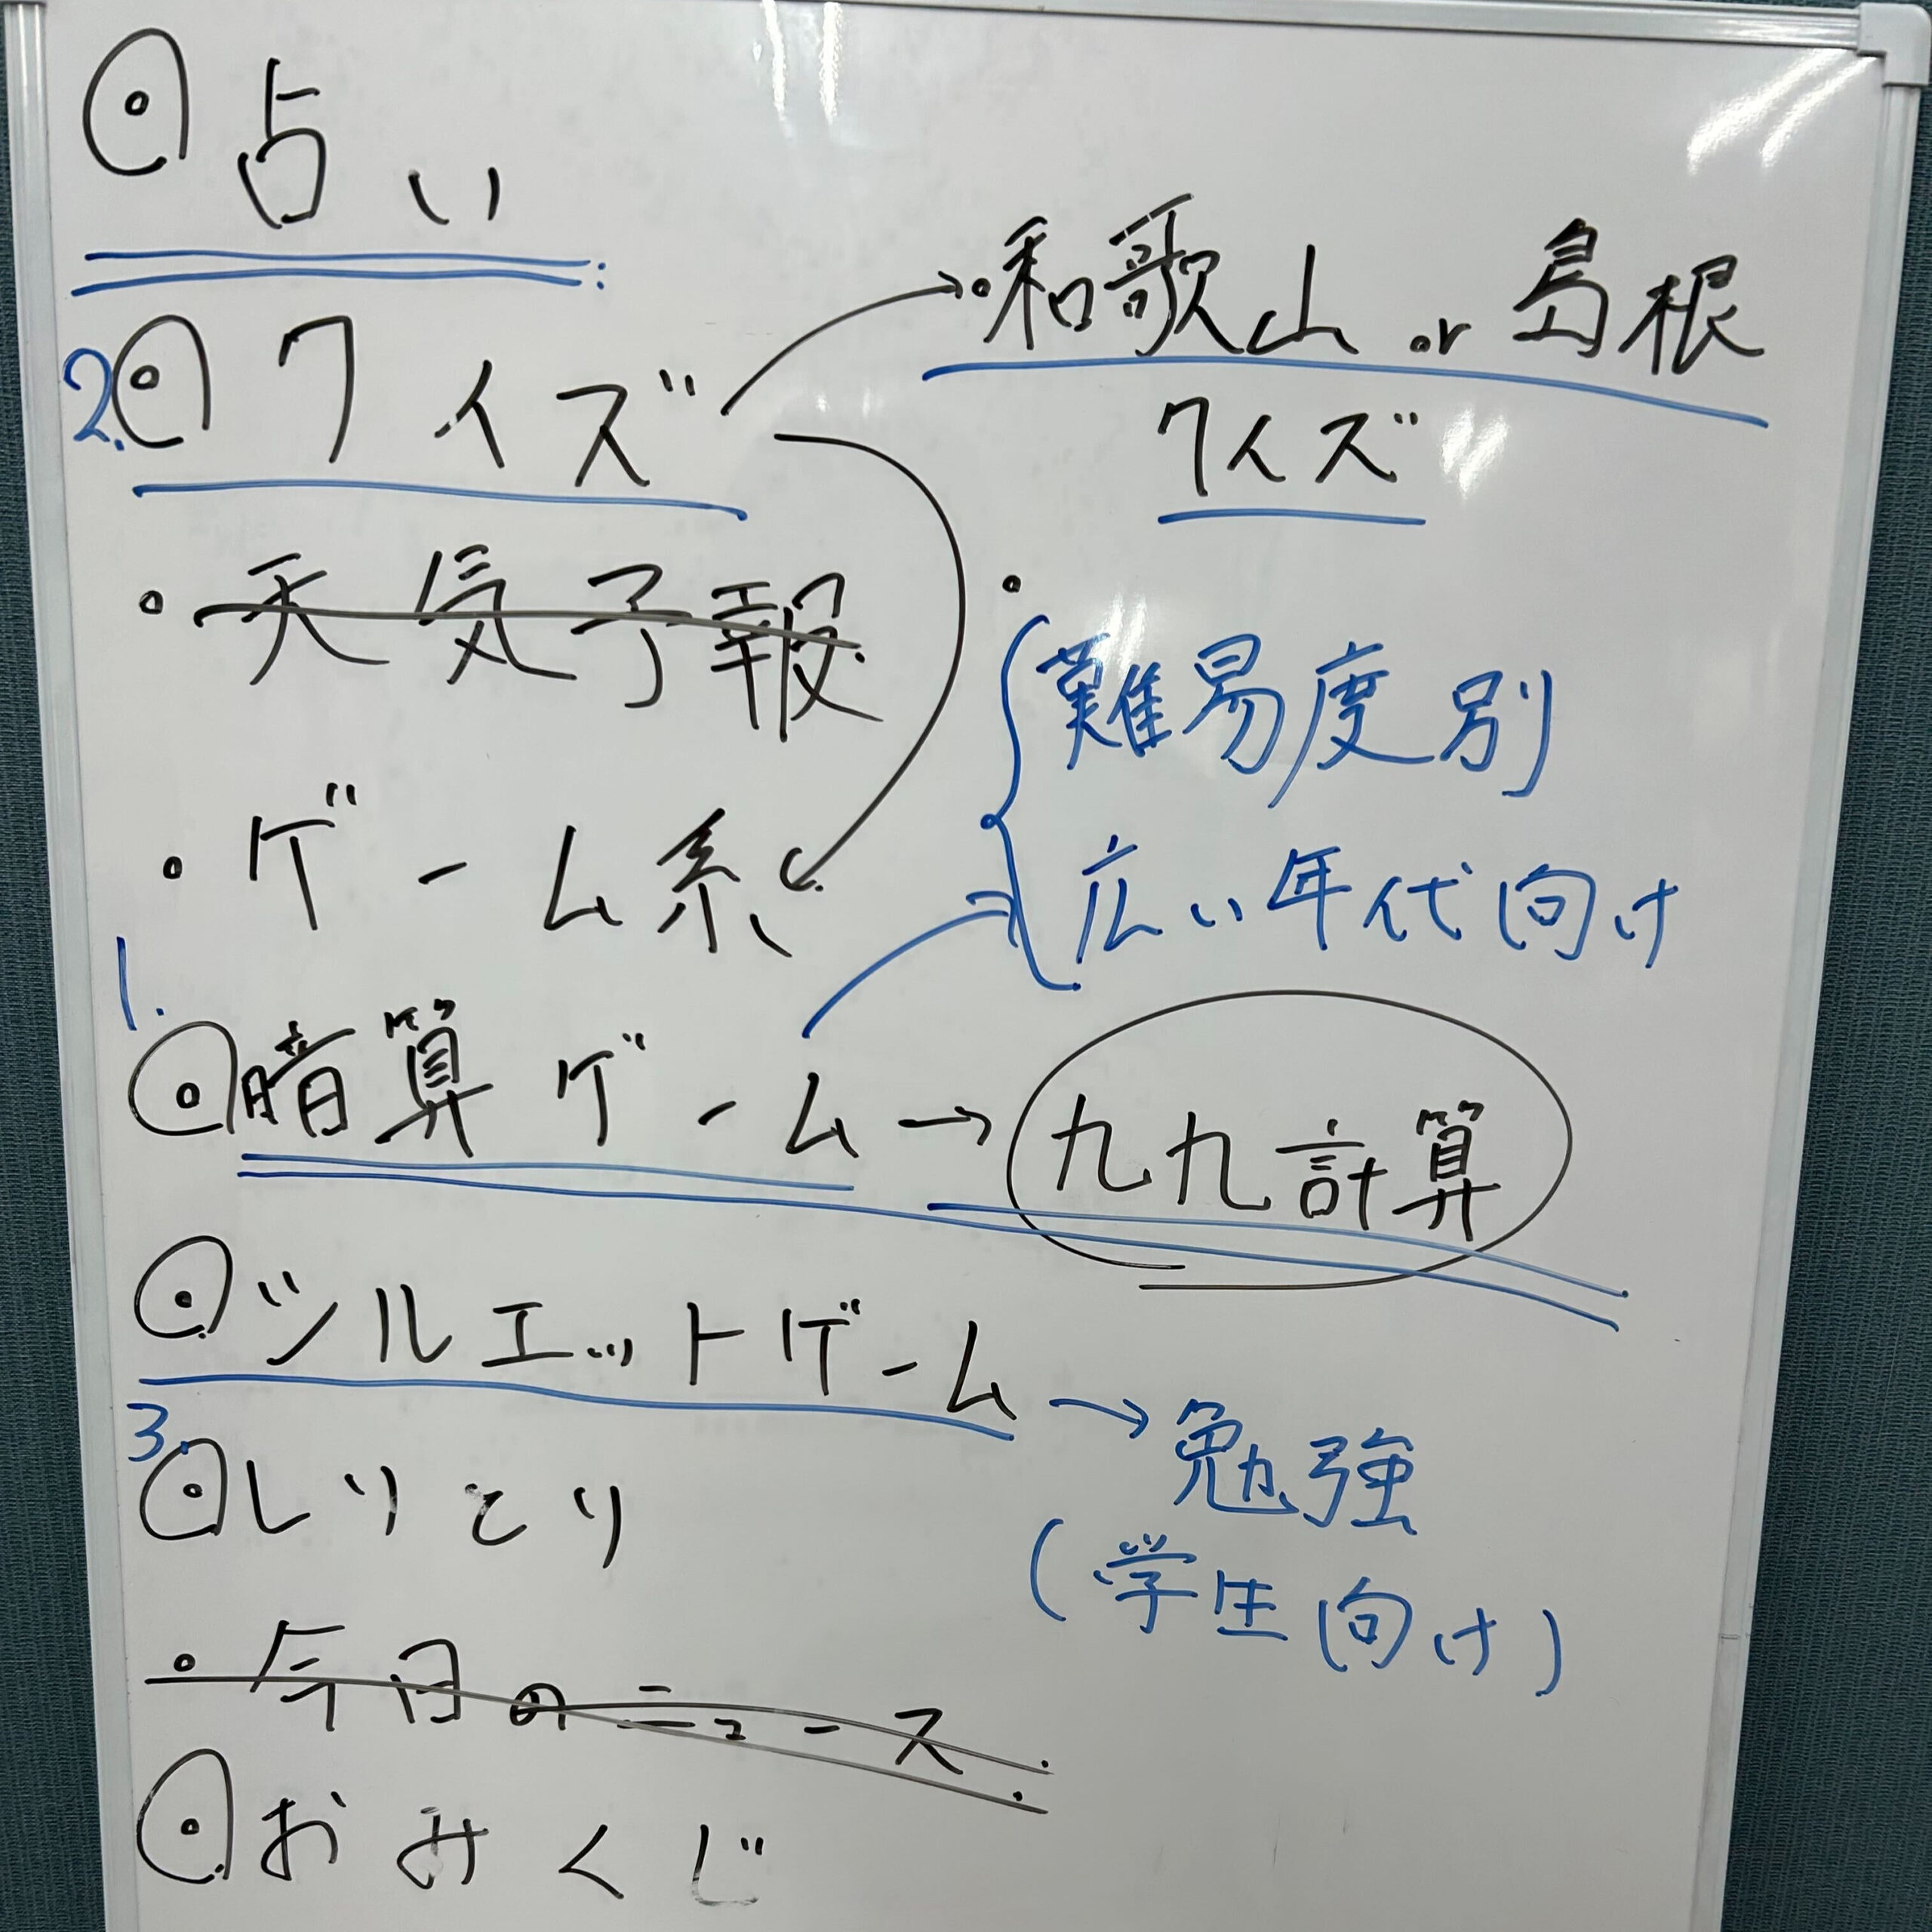 占い
2. クイズ → ・和歌山 or 島根
クイズ
・天気予報
・
難易度別
・ゲーム系
広い年代向け
1.
暗算ゲーム → 九九計算
シルエットゲーム → 勉強
(学生向け)
3. しりとり
・今日のニュース
おみくじ